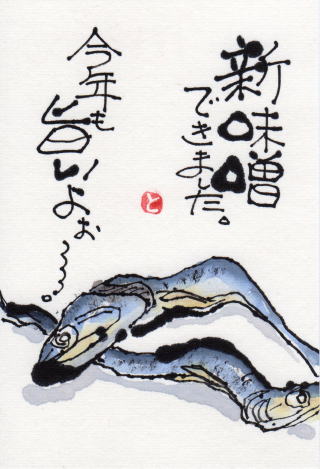 新味噌
できました。
今年も
旨いよぉ
と